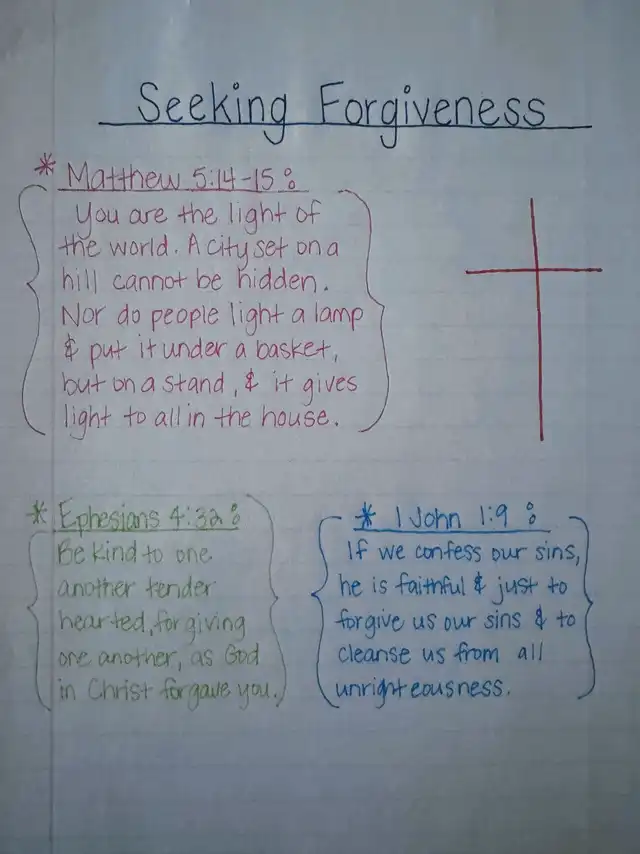 Seeking Forgiveness
* Matthew 5:14-15:
You are the light of
the world. A city set on a
hill cannot be hidden.
Nor do people light a lamp
& put it under a basket,
but on a stand, & it gives
light to all in the house.
* Ephesians 4:32:
Be kind to one
another tender
hearted, forgiving
one another, as God
in Christ forgave you.
* 1 John 1:9:
If we confess our sins,
he is faithful & just to
forgive us our sins & to
cleanse us from all
unrighteousness.